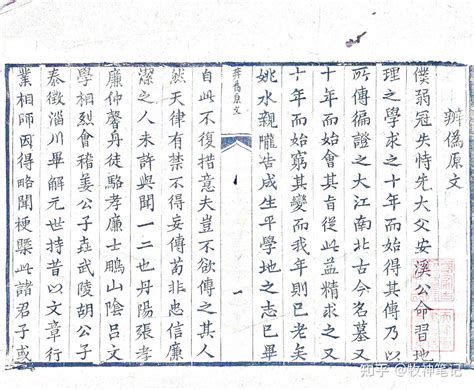 辨偽原文
僕弱冠失恃先大父安溪公命習地
理之學求之十年而始得其傳乃以
所傳徧證之大江南北古今名墓又
十年而始會其旨從此益精求之又
十年而始窮其變而我年則已老矣
姚水親隴告成生平學地之志已畢
辨偽原文
一
自此不復措意夫豈不欲傳之其人
然天律有禁不得妄傳苟非忠信廉
潔之人未許與聞一二也丹陽張孝
廉仲馨丹徒駱孝廉士鵬山陰呂文
學相烈會稽姜公子垚武陵胡公子
泰徵淄川畢解元世持昔以文章行
業相師因得略聞梗槩此諸君子或
知乎 @牧神笔记